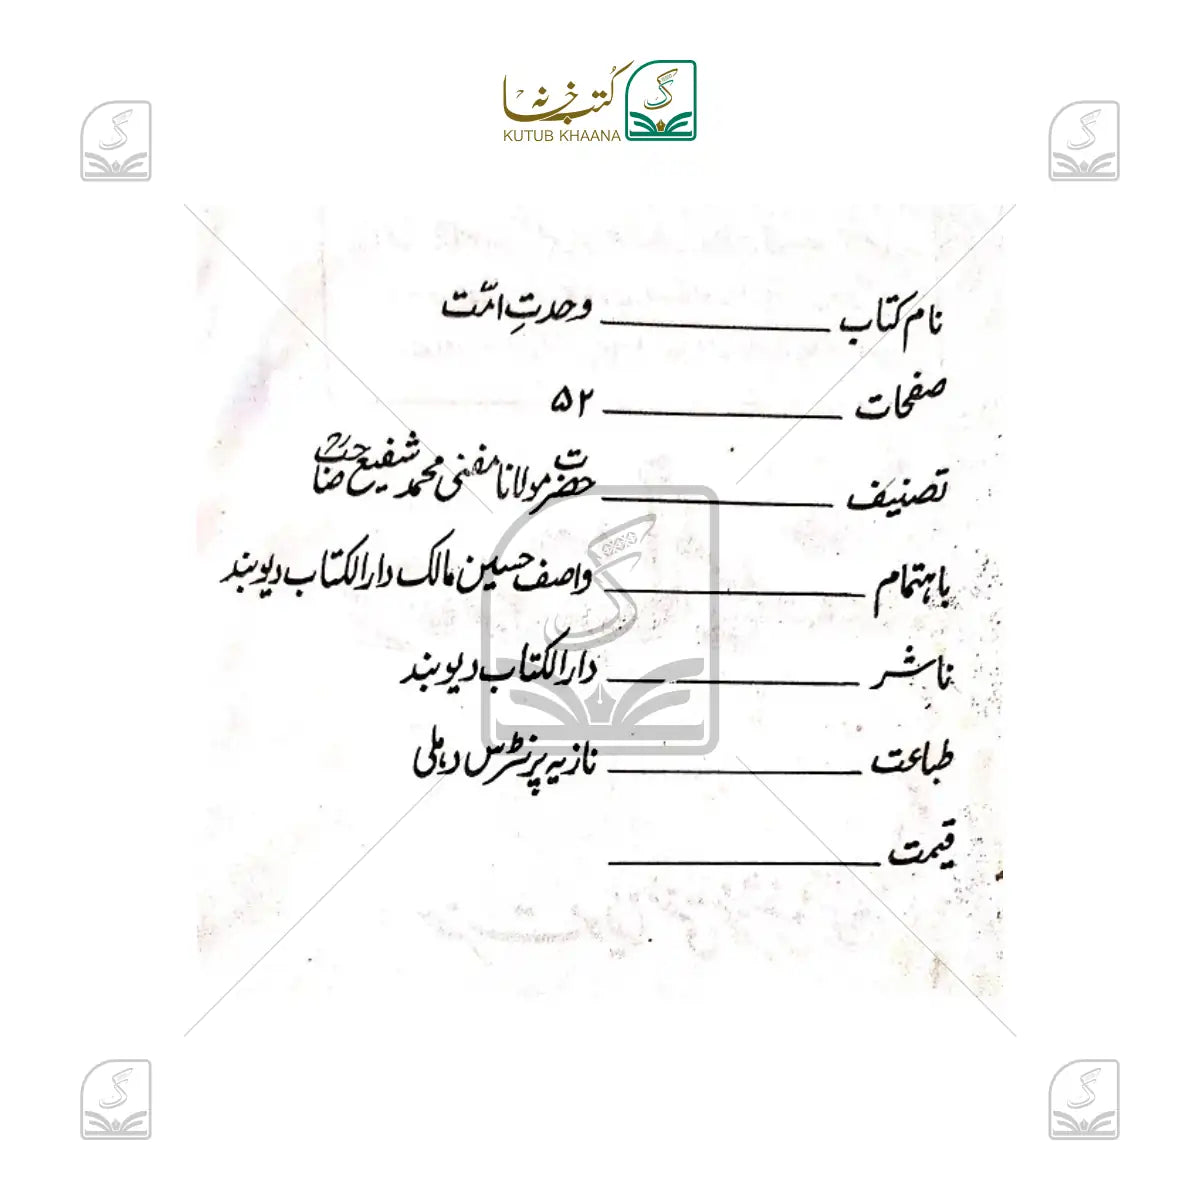 کتب خانہ
KUTUB KHAANA
نام کتاب ــــــــ وحدتِ امّت
صفحات ــــــــ ۵۲
تصنیف ــــــــ حضرت مولانا مفتی محمد شفیع صاحبؒ
باہتمام ــــــــ واصف حسین مالک دارالکتاب دیوبند
ناشر ــــــــ دارالکتاب دیوبند
طباعت ــــــــ نازیہ پرنٹرس دہلی
قیمت ــــــــ